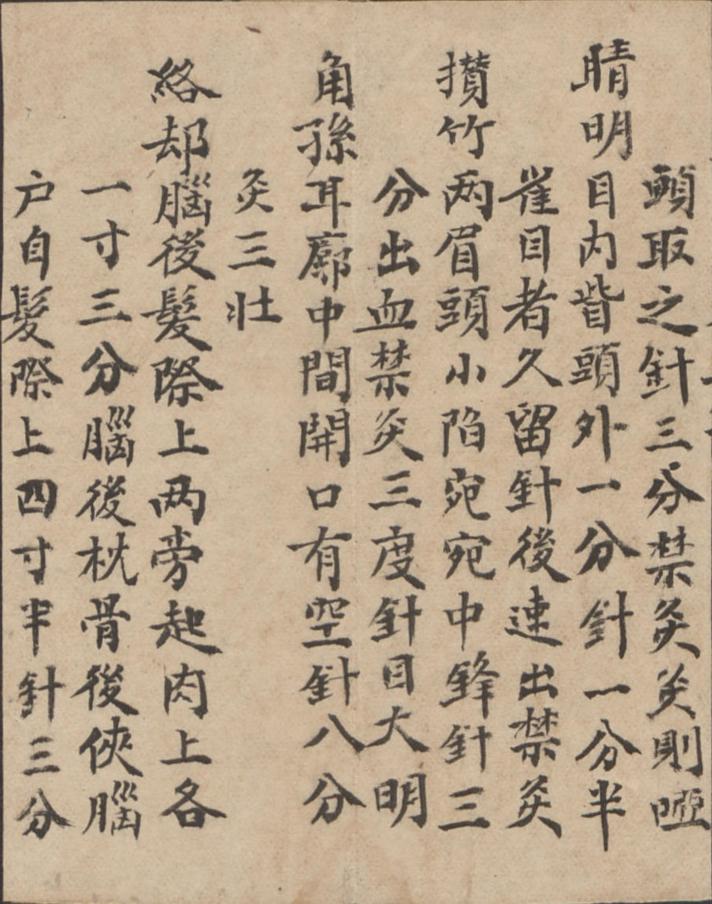 頭取之針三分禁灸灸則啞
晴明目内眥頭外一分針一分半
雀目者久留針後速出禁灸
攢竹两眉頭小陷宛宛中鋒針三
分出血禁灸三度針目大明
角孫耳廓中間開口有空針八分
灸三壯
絡却腦後髮際上两旁起肉上各
一寸三分腦後枕骨後俠腦
户自髮際上四寸半針三分